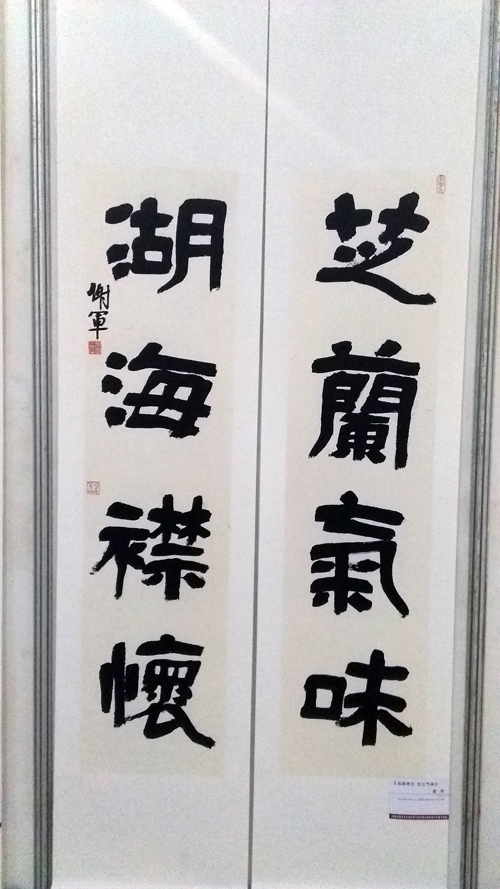 芝蘭氣味
湖海襟懷
謝軍